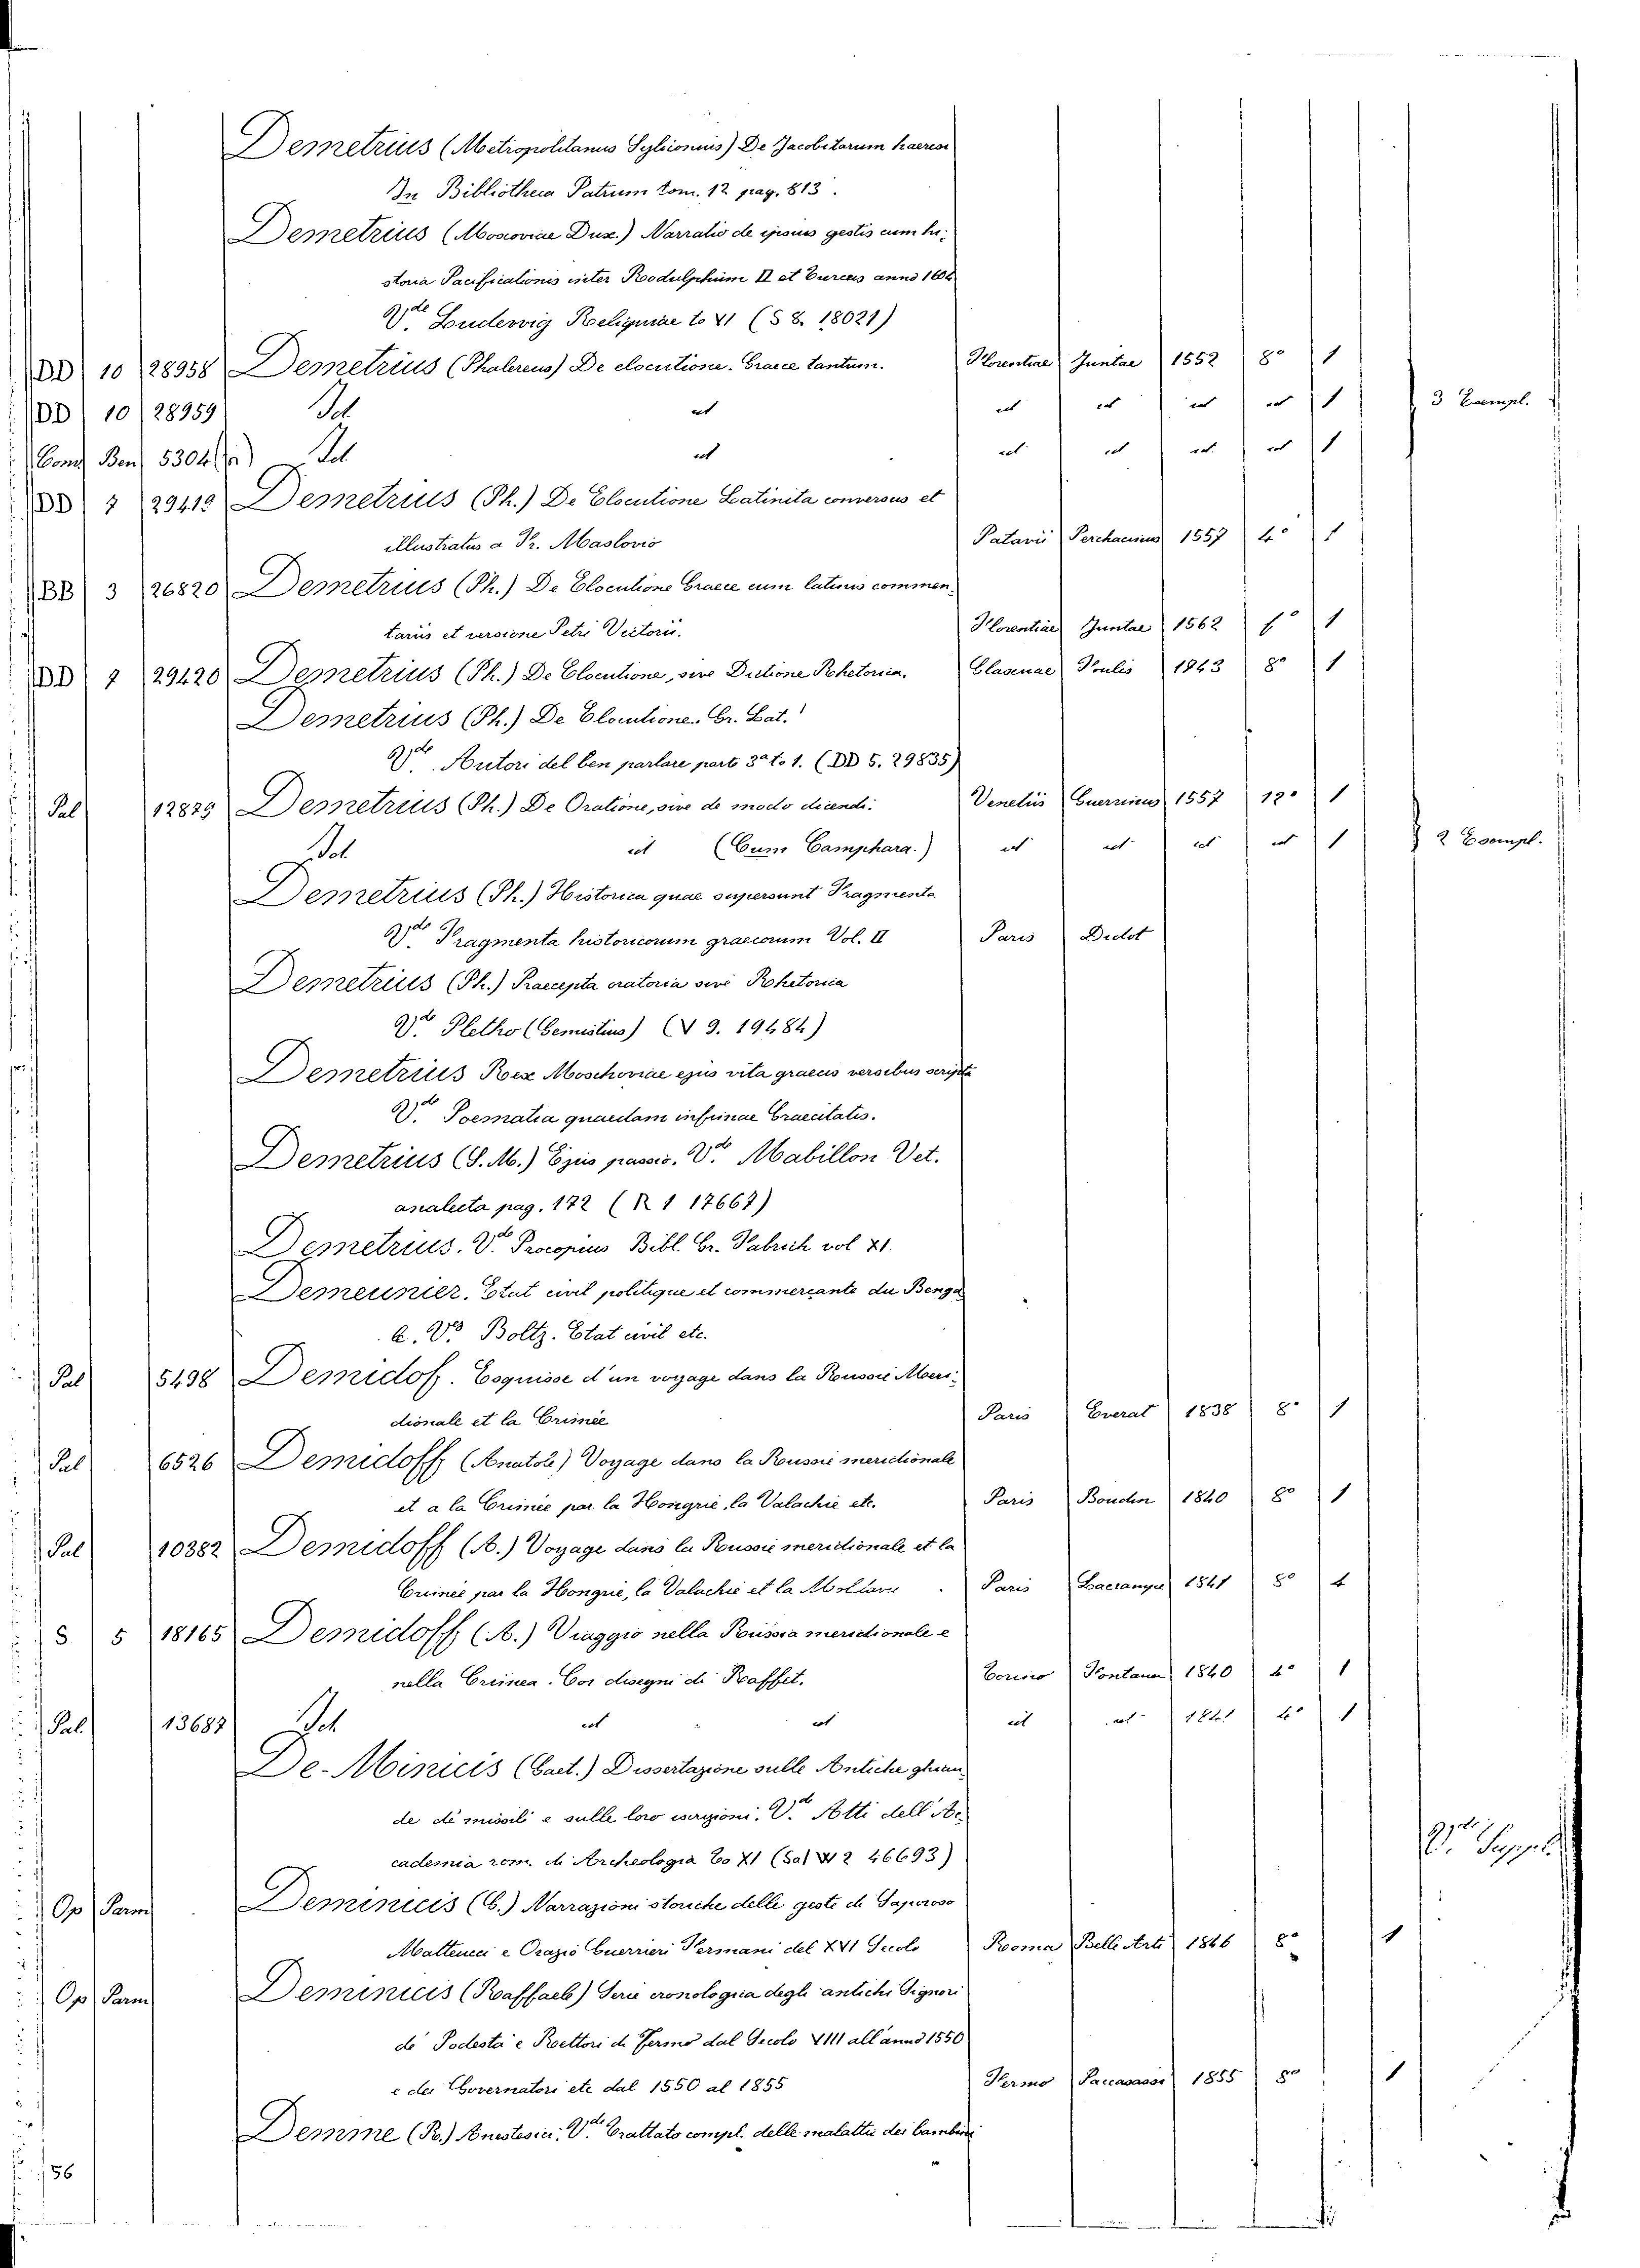 Demetrius (Metropolitanus Sylicionus) De Jacobitarum haeresi
In Bibliotheca Patrum tom. 12 pag. 813.
Demetrius (Moscoviae Dux.) Narratio de ipsius gestis cum hi-
storia Pacificationis inter Rodulphum II et Turcus anno 1606
Vde Ludewig Reliquiae to VI (S 8. 18021)
DD 10 28958 Demetrius (Phalereus) De elocutione. Graece tantum. Florentiae Juntae 1552 8° 1
DD 10 28959 Id. id id id id id 1 3 Exempl.
Cons Ben 5304 Id id id id id id 1
DD 7 29419 Demetrius (Ph.) De Elocutione Latinita conversus et
illustratus a Fr. Maslovio Patavii Perchacinus 1557 4° 1
BB 3 26820 Demetrius (Ph.) De Elocutione Graece cum latinis commen-
tariis et versione Petri Victorii. Florentiae Juntae 1562 f° 1
DD 7 29420 Demetrius (Ph.) De Elocutione, sive Dictione Rhetorica. Glascuae Foulis 1743 8° 1
Demetrius (Ph.) De Elocutione. Gr. Lat.
Vde Autori del ben parlare parte 3a to 1. (DD 5. 29835)
Pal 12829 Demetrius (Ph.) De Oratione, sive de modo dicendi. Venetiis Guerrinus 1557 12° 1
Id. id (Cum Camphara.) id id id id 1 2 Esempl.
Demetrius (Ph.) Historica quae supersunt Fragmenta
Vde Fragmenta historicorum graecorum Vol. II Paris Didot
Demetrius (Ph.) Praecepta oratoria sive Rhetorica
Vde Pletho (Gemistius) (V 9. 19484)
Demetrius Rex Moschoviae ejus vita graecis versibus scripta
Vde Poematia quaedam infimae Graecitatis.
Demetrius (S. M.) Ejus passio. Vde Mabillon Vet.
analecta pag. 172 (R 1 17667)
Demetrius. Vde Procopius Bibl. Gr. Fabrich vol XI
Demeunier. Etat civil politique et commerçante du Benga
le. Vde Boltz. Etat civil etc.
Pal 5498 Demidof. Esquisse d'un voyage dans la Roussie Meri-
dionale et la Crimée Paris Everat 1838 8° 1
Pal 6526 Demidoff (Anatole) Voyage dans la Roussie meridionale
et a la Crimée par la Hongrie, la Valachie etc. Paris Boudin 1840 8° 1
Pal 10382 Demidoff (A.) Voyage dans la Roussie meridionale et la
Crimée par la Hongrie, la Valachie et la Moldavie. Paris 1841 8° 4
S 5 18165 Demidoff (A.) Viaggio nella Russia meridionale e
nella Crimea. Coi disegni di Raffet. Torino Fontana 1840 4° 1
Pal. 13687 Id. id id id id 1841 4° 1
De-Minicis (Gaet.) Dissertazione sulle Antiche ghian-
de di missili e sulle loro iscrizioni. Vde Atti dell'Ac-
cademia rom. di Archeologia To XI (Sal W 2 46693) Vde Suppl.
Op Farm Deminicis (G.) Narrazioni storiche delle geste di Saporoso
Matteucci e Orazio Guerrieri Fermani del XVI Secolo Rooma Belle Arti 1846 8° 1
Op Farm Deminicis (Raffaele) Serie cronologica degli antichi Signori
de Podestà e Rettori di Fermo dal Secolo VIII all'anno 1550
e dei Governatori etc dal 1550 al 1855 Fermo Paccasassi 1855 8° 1
Demme (R.) Anestesici. Vde Trattato compl. delle malattie dei bambini
156